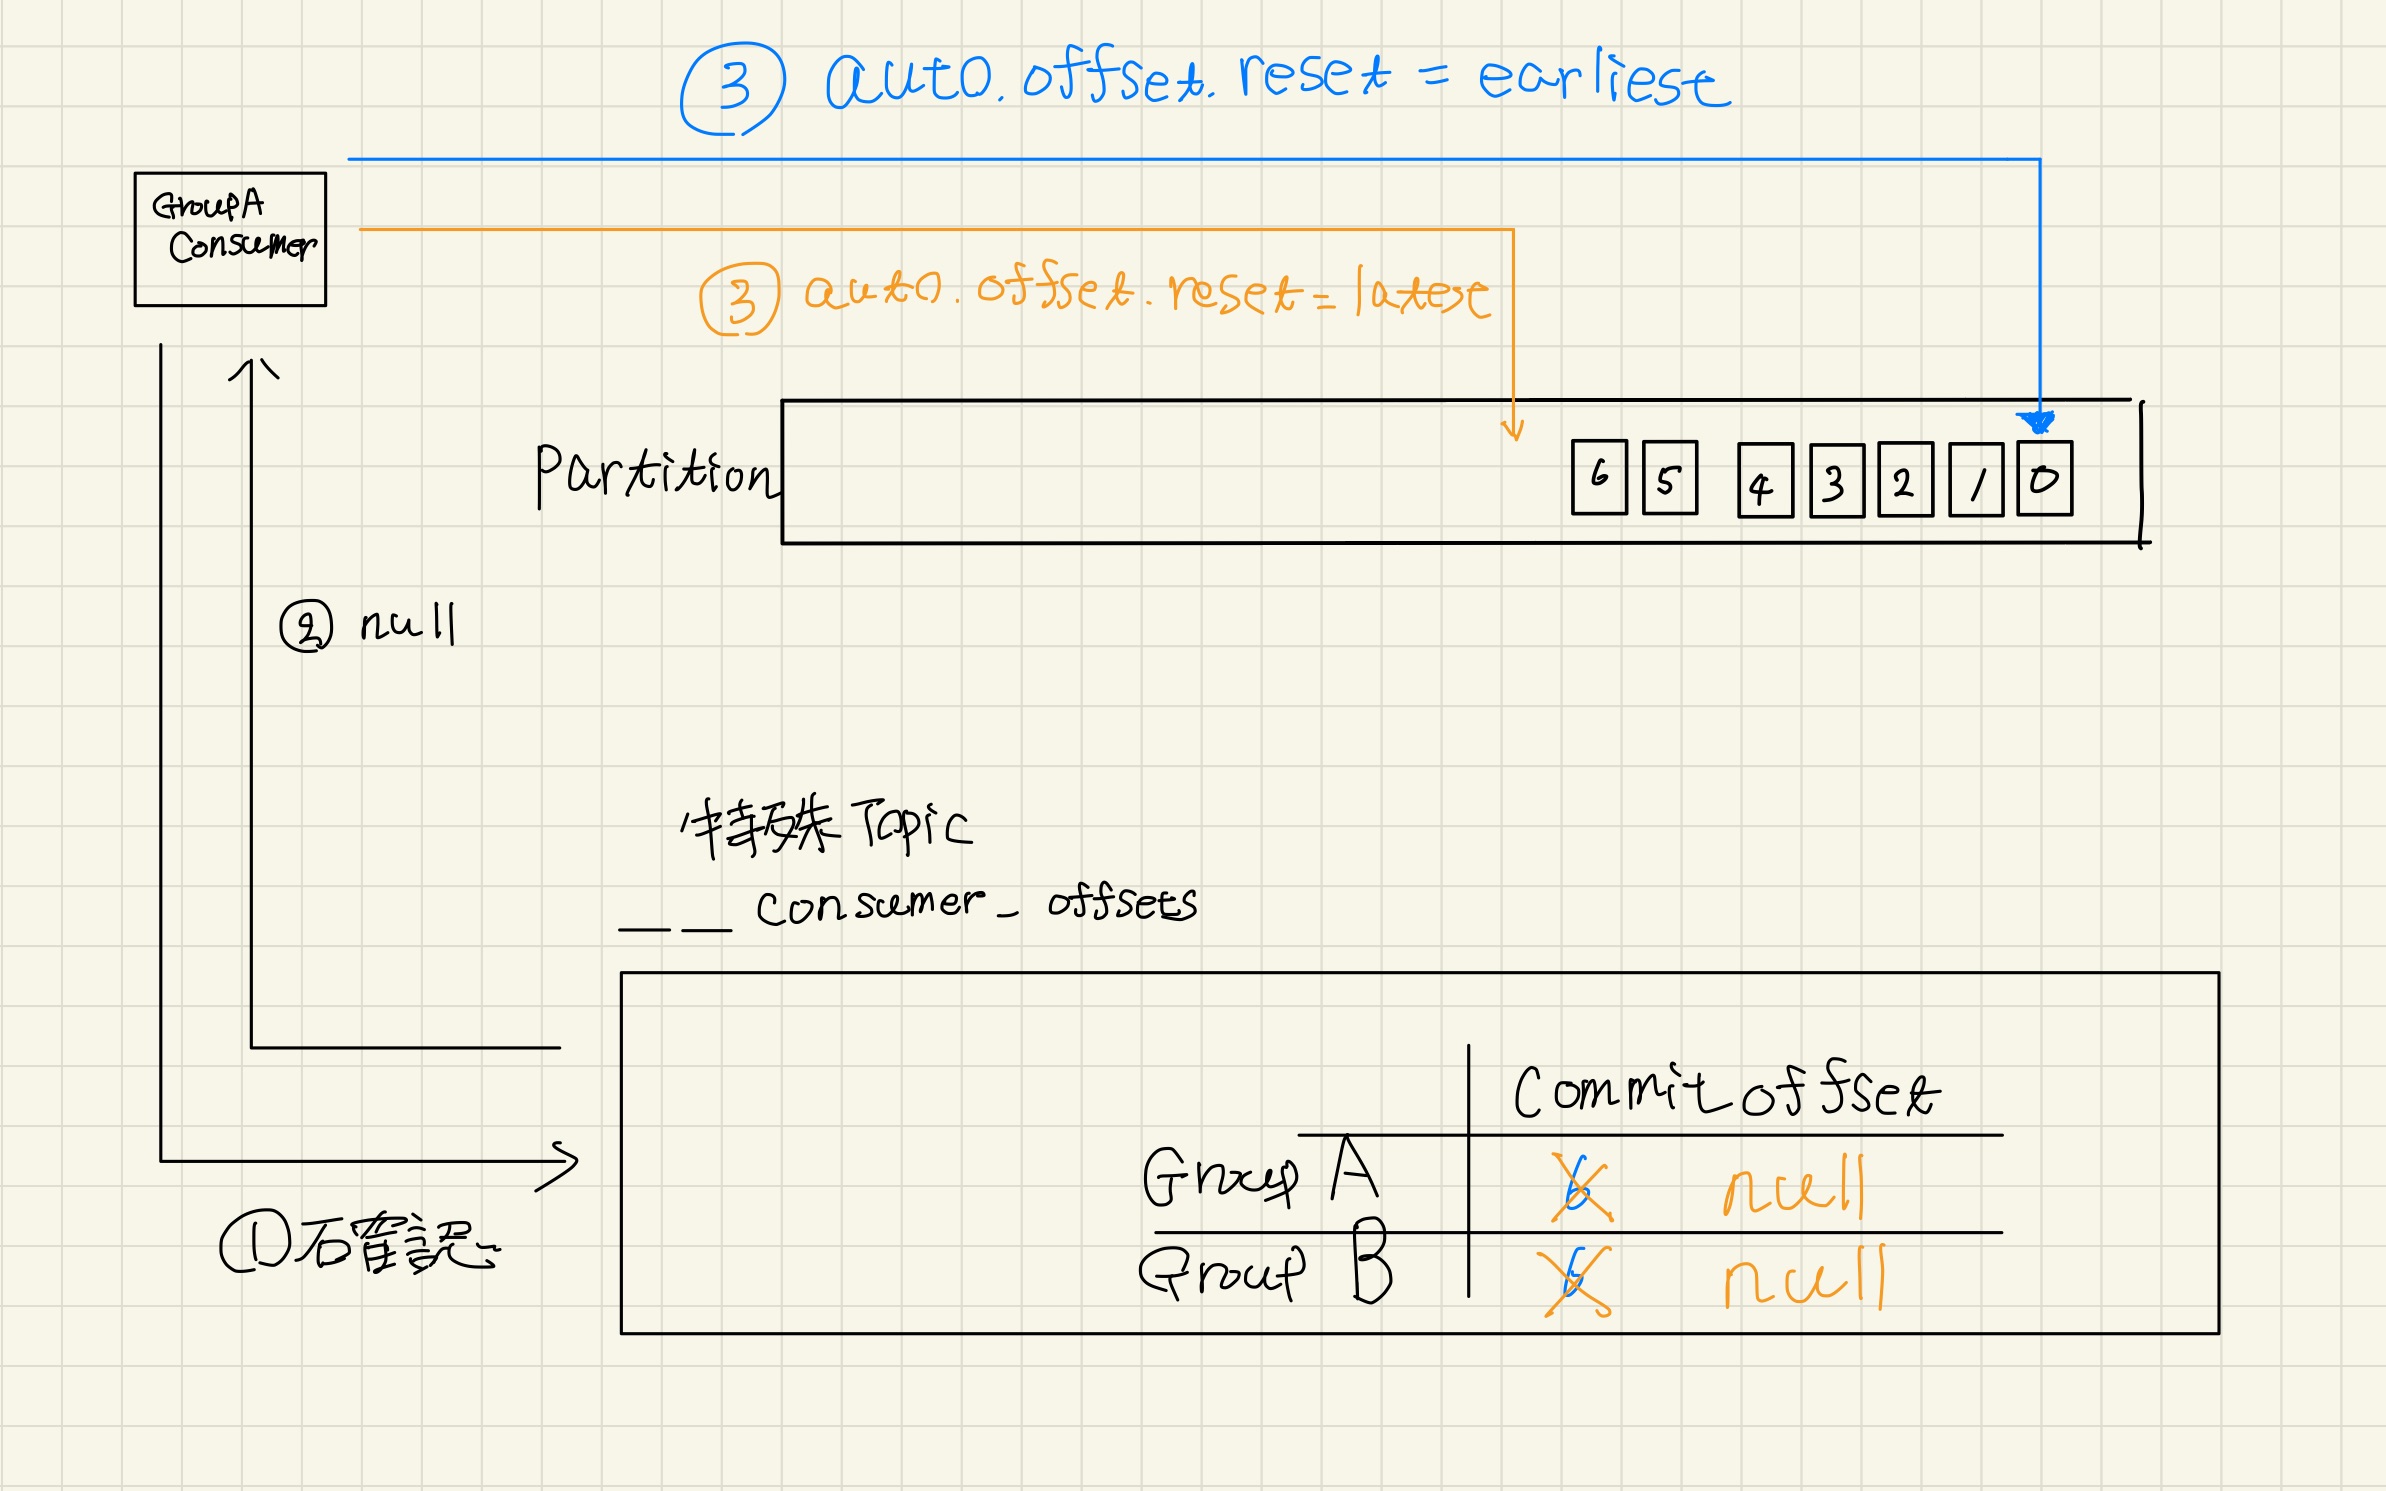 ③ auto.offset.reset = earliest
GroupA
Consumer
③ auto.offset.reset = latest
Partition
6 5 4 3 2 1 0
② null
特殊 Topic
__ consumer_offsets
Commit offset
Group A 6 null
① 確認
Group B 6 null